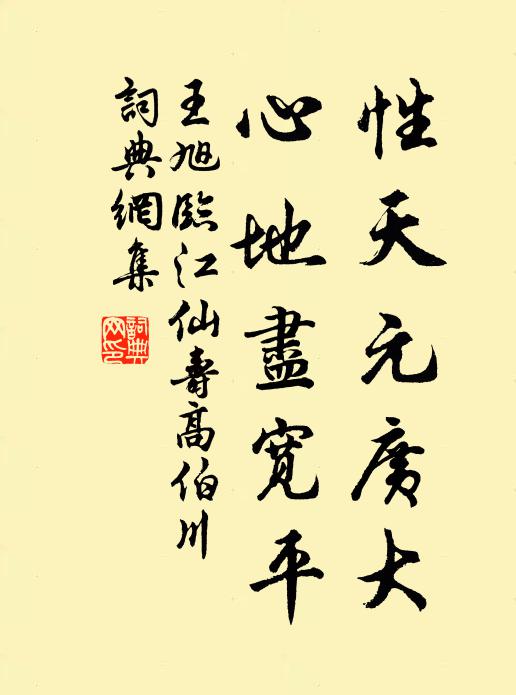 性天元廣大
心地盡寬平
王旭臨江仙壽高伯川
詞典網集
詞典网印